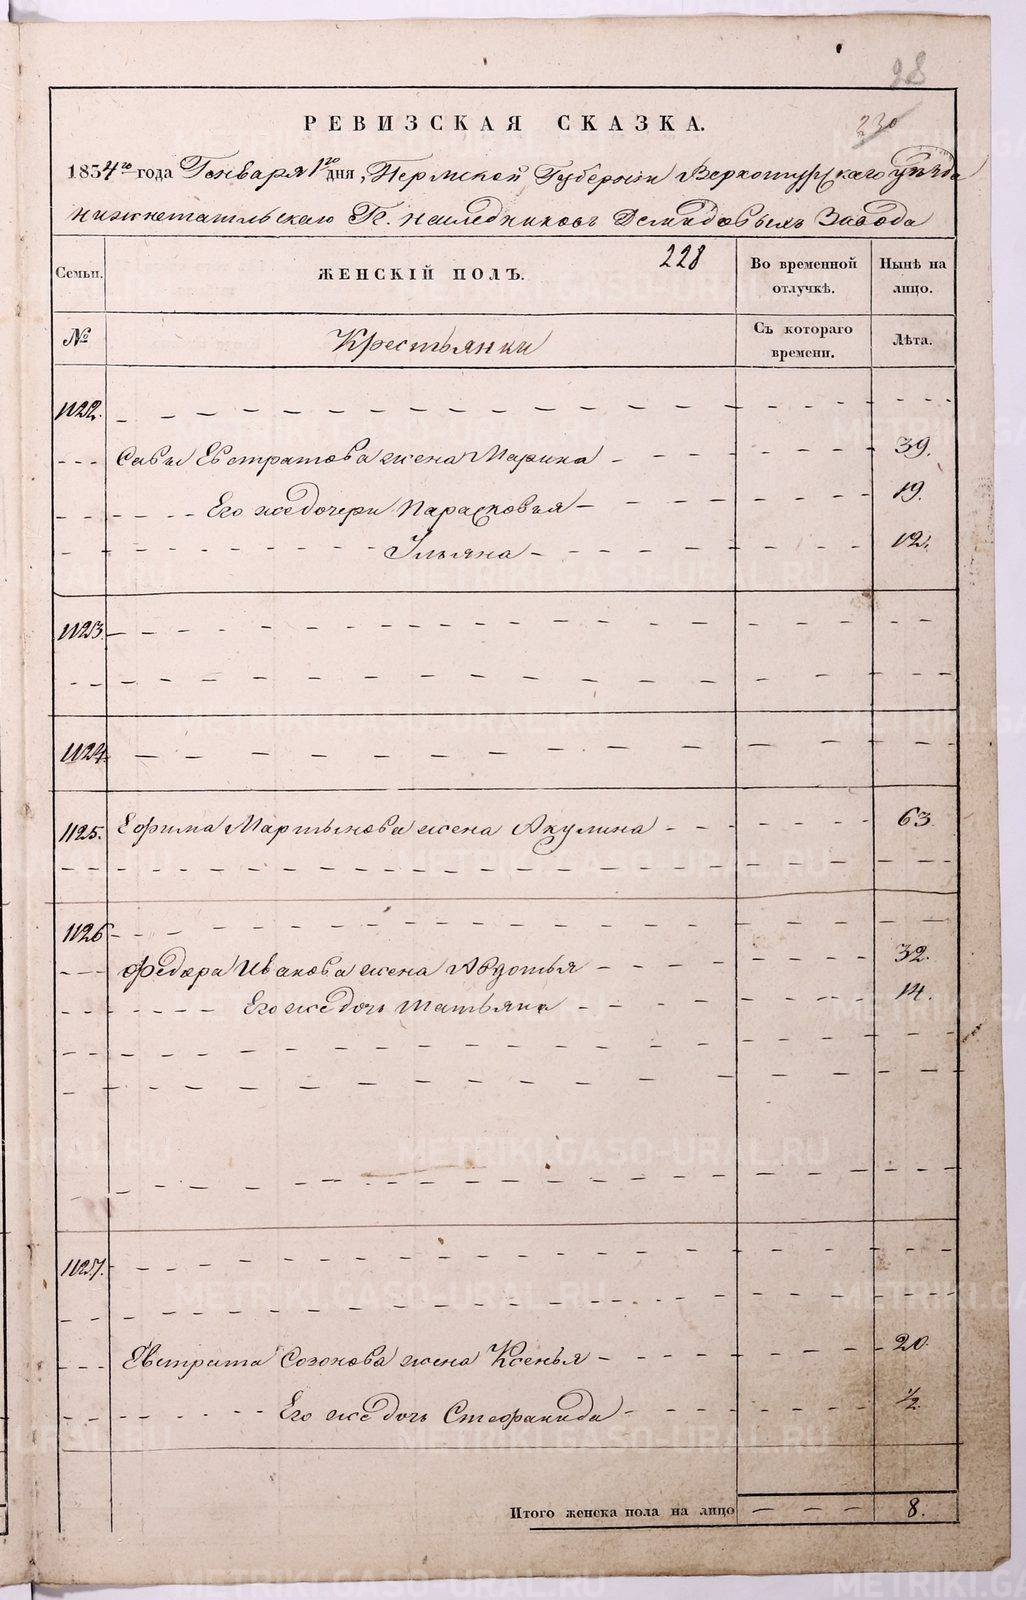 98
РЕВИЗСКАЯ СКАЗКА.
230
1834го года Генваря 1го дня, Пермской Губернии Верхотурскаго уѣзда
нижнетагильскаго Г. наследниковъ Демидовыхъ Завода
Семьи.
ЖЕНСКІЙ ПОЛЪ.
228
Во временной отлучкѣ.
Нынѣ на лицо.
№
Крестьянки
Съ котораго времени.
Лѣта.
1122.
Савы Евстратова жена Марина 39.
Его же дочери Парасковья 19.
Ульяна 12.
1123.
1124.
1125. Ефима Мартынова жена Акулина 63.
1126
Федора Иванова жена Авдотья 32.
Его же дочь Татьяна 14.
1127.
Евстрата Созонова жена Ксенья 20.
Его же дочь Стефанида 1/2.
Итого женска пола на лицо 8.
METRIKI.GASO-URAL.RU